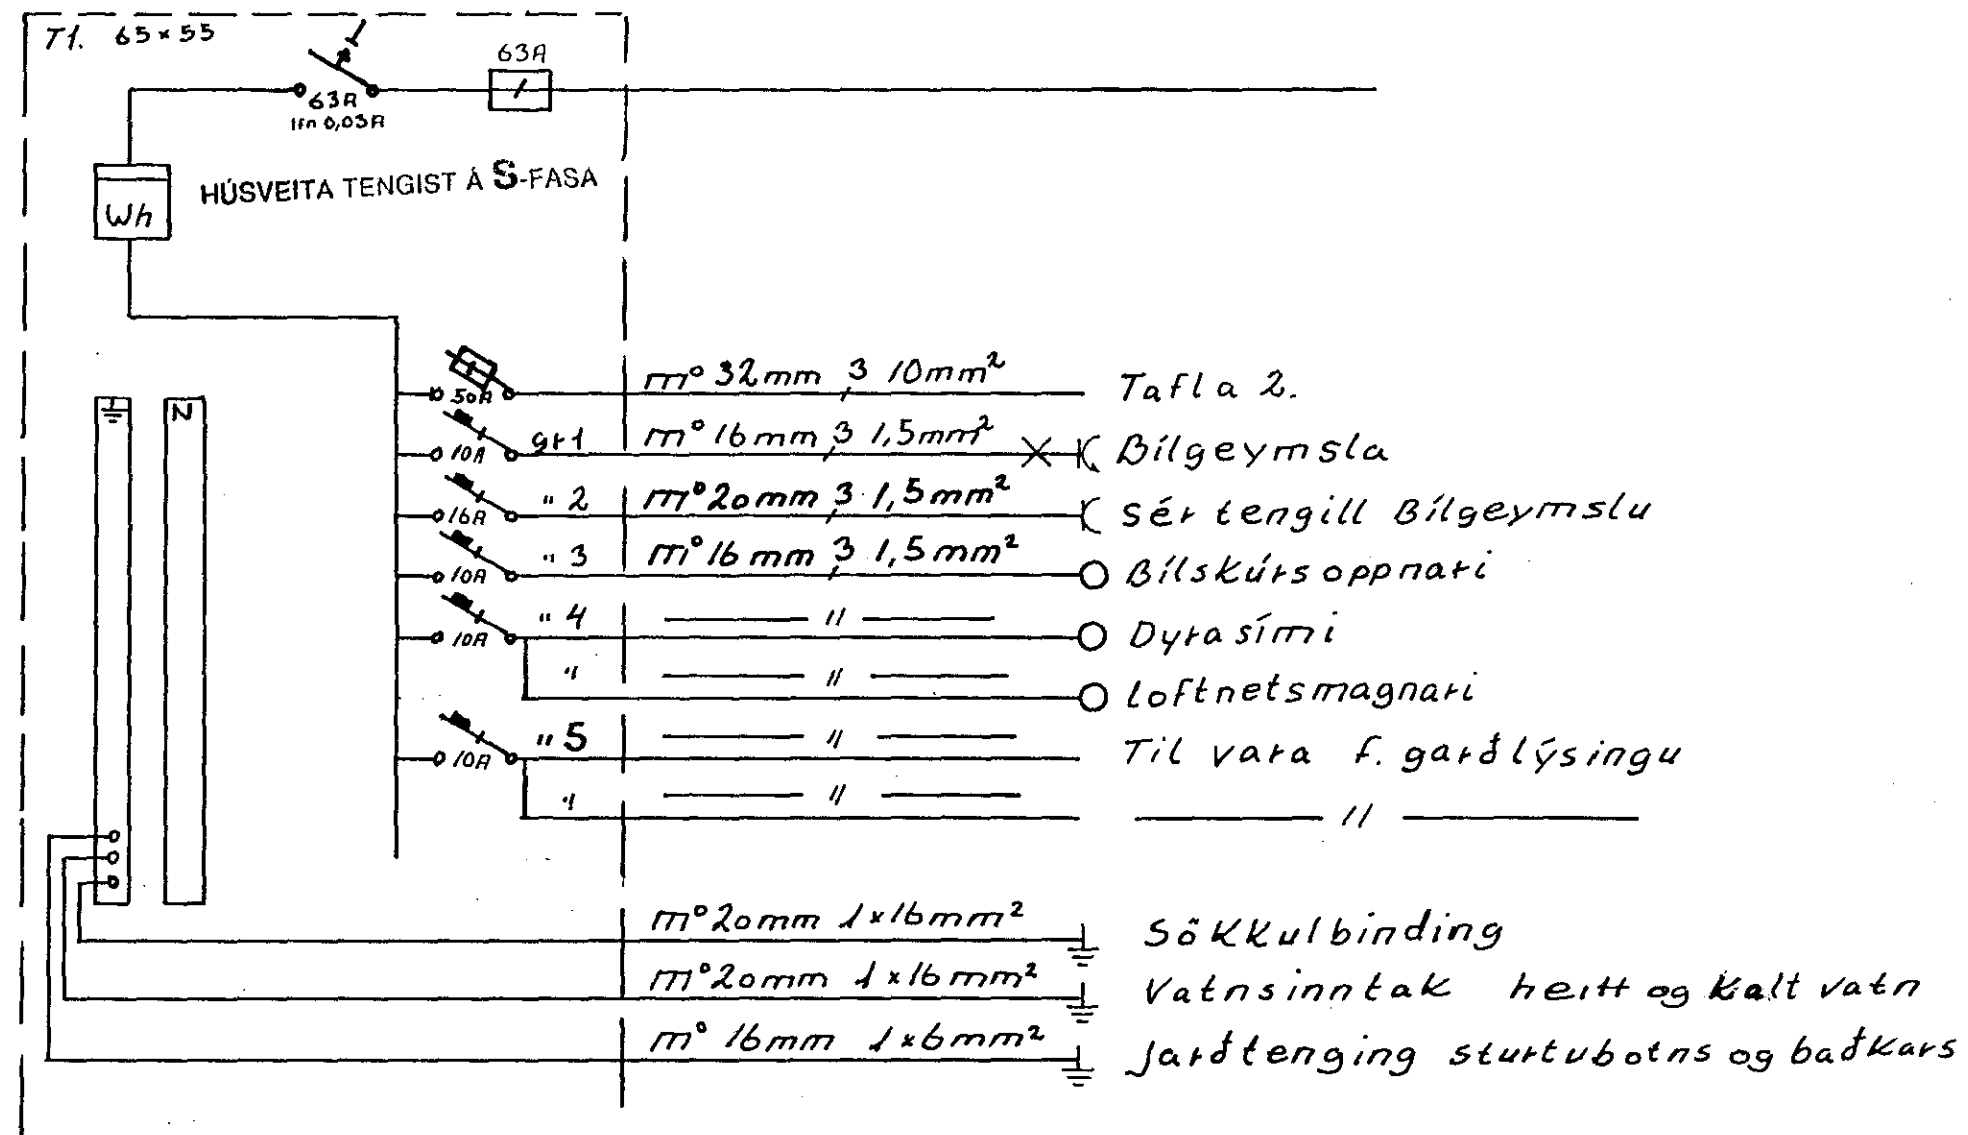 T1. 65×55
63A
63A
Ifn 0,03A
HÚSVEITA TENGIST Á S-FASA
Wh
N
50A m° 32mm 3 10mm² Tafla 2.
10A gr1 m° 16mm 3 1,5mm² Bílgeymsla
16A " 2 m° 20mm 3 1,5mm² Sér tengill Bílgeymslu
10A " 3 m° 16mm 3 1,5mm² Bílskúrsoppnari
10A " 4 — " — Dyrasími
" — " — Loftnetsmagnari
10A " 5 — " — Til vara f. garðlýsingu
" — " — — " —
m° 20mm 1×16mm² Sökkulbinding
m° 20mm 1×16mm² Vatnsinntak heitt og kalt vatn
m° 16mm 1×6mm² Jarðtenging sturtubotns og baðkars